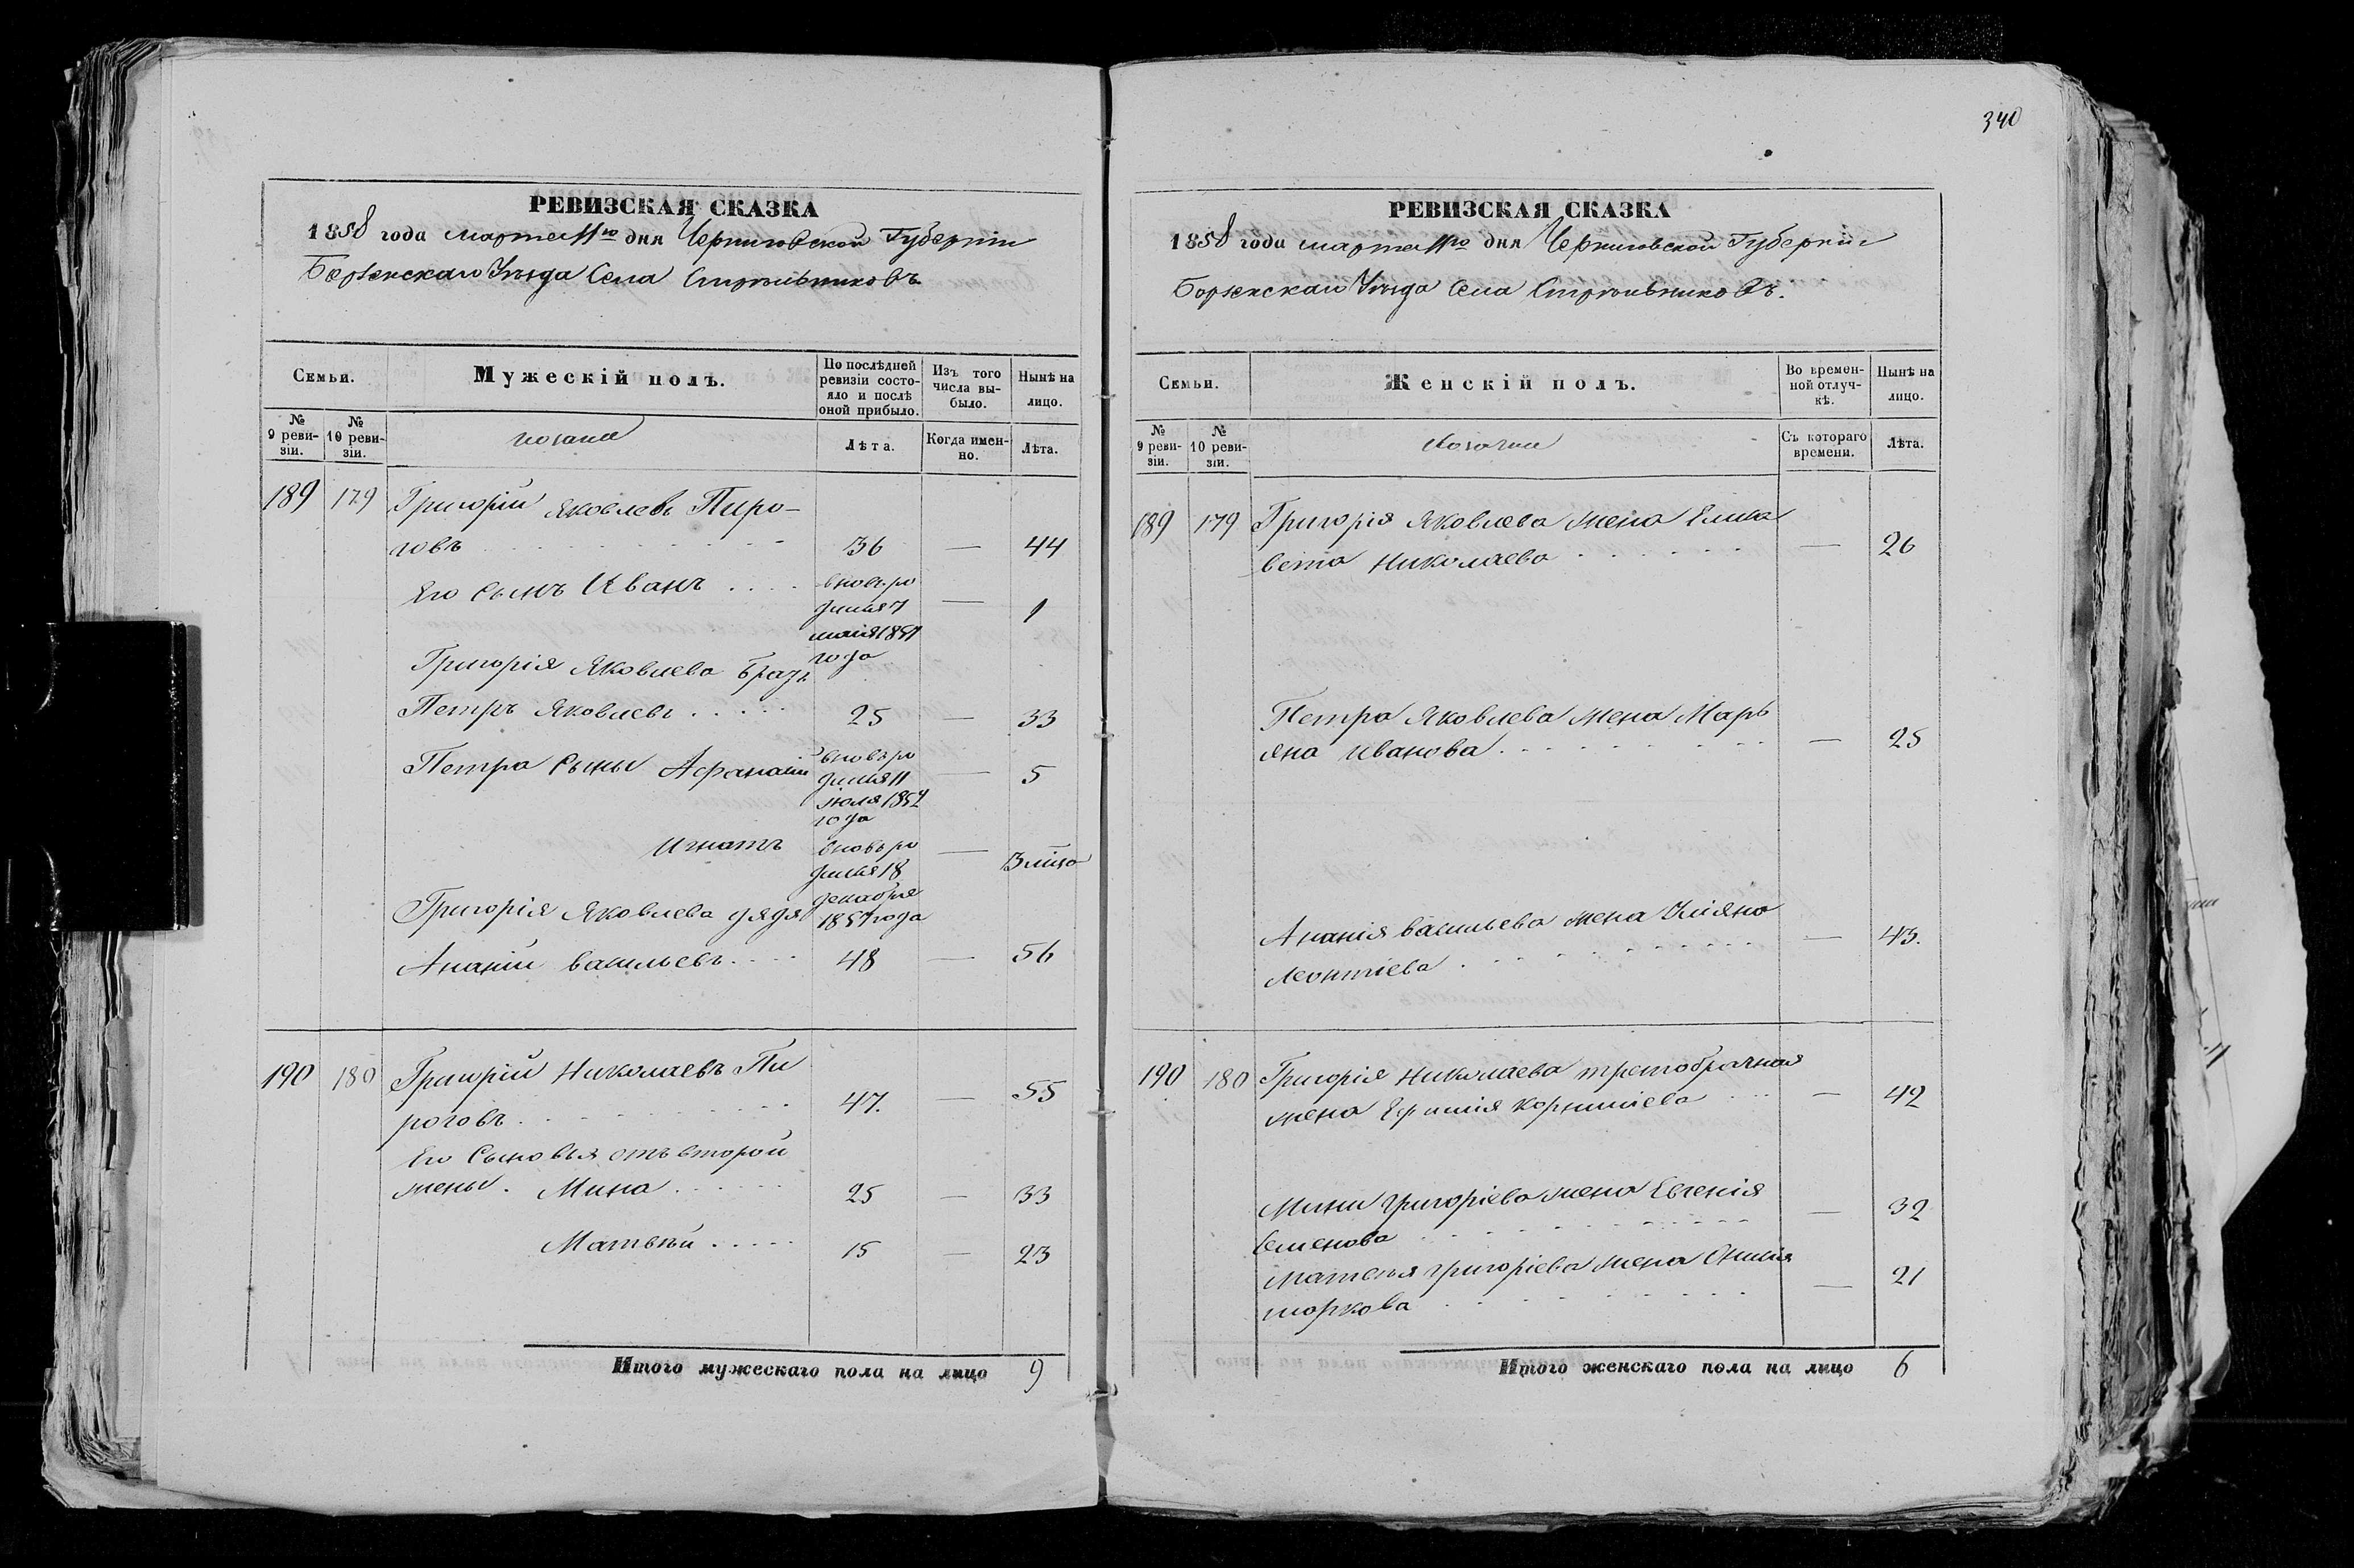 340
РЕВИЗСКАЯ СКАЗКА
1858 года марта 11го дня Черниговской Губерніи
Борзенскаго Уѣзда Села Стрѣльниковъ
Семьи.
Мужескій полъ.
По послѣдней ревизіи состояло и послѣ оной прибыло.
Изъ того числа выбыло.
Нынѣ на лицо.
№ 9 ревизіи.
№ 10 ревизіи.
козаки
Лѣта.
Когда именно.
Лѣта.
189 179 Григорій Яковлевъ Пиро-
говъ 36 — 44
Его сынъ Иванъ вновь ро
дился 7 — 1
маія 1857
года
Григорія Яковлева братъ
Петръ Яковлевъ 25 — 33
Петра сыны Афанасій вновь ро
дился 11 — 5
іюля 1852
года
Игнатъ вновь ро
дился 18 — 3 мѣся
декабря
Григорія Яковлева дядя 1857 года
Ананій Васильевъ 48 — 56
190 180 Григорій Николаевъ Пи
роговъ 47. — 55
Его сыновья отъ второй
жены. Мина 25 — 33
Матвѣй 15 — 23
Итого мужескаго пола на лицо 9
РЕВИЗСКАЯ СКАЗКА
1858 года марта 11го дня Черниговской Губерніи
Борзенскаго Уѣзда Села Стрѣльниковъ.
Семьи.
Женскій полъ.
Во временной отлучкѣ.
Нынѣ на лицо.
№ 9 ревизіи.
№ 10 ревизіи.
Козачки
Съ котораго времени.
Лѣта.
189 179 Григорія Яковлева жена Елиза
вета Николаева — 26
Петра Яковлева жена Марь
яна Иванова — 25
Ананія Васильева жена Уліяна
Леонтіева — 43.
190 180 Григорія Николаева третобрачная
жена Ефимія Корниліева — 42
Мины Григоріева жена Евгенія
Семенова — 32
Матвѣя Григоріева жена
Маркова — 21
Итого женскаго пола на лицо 6